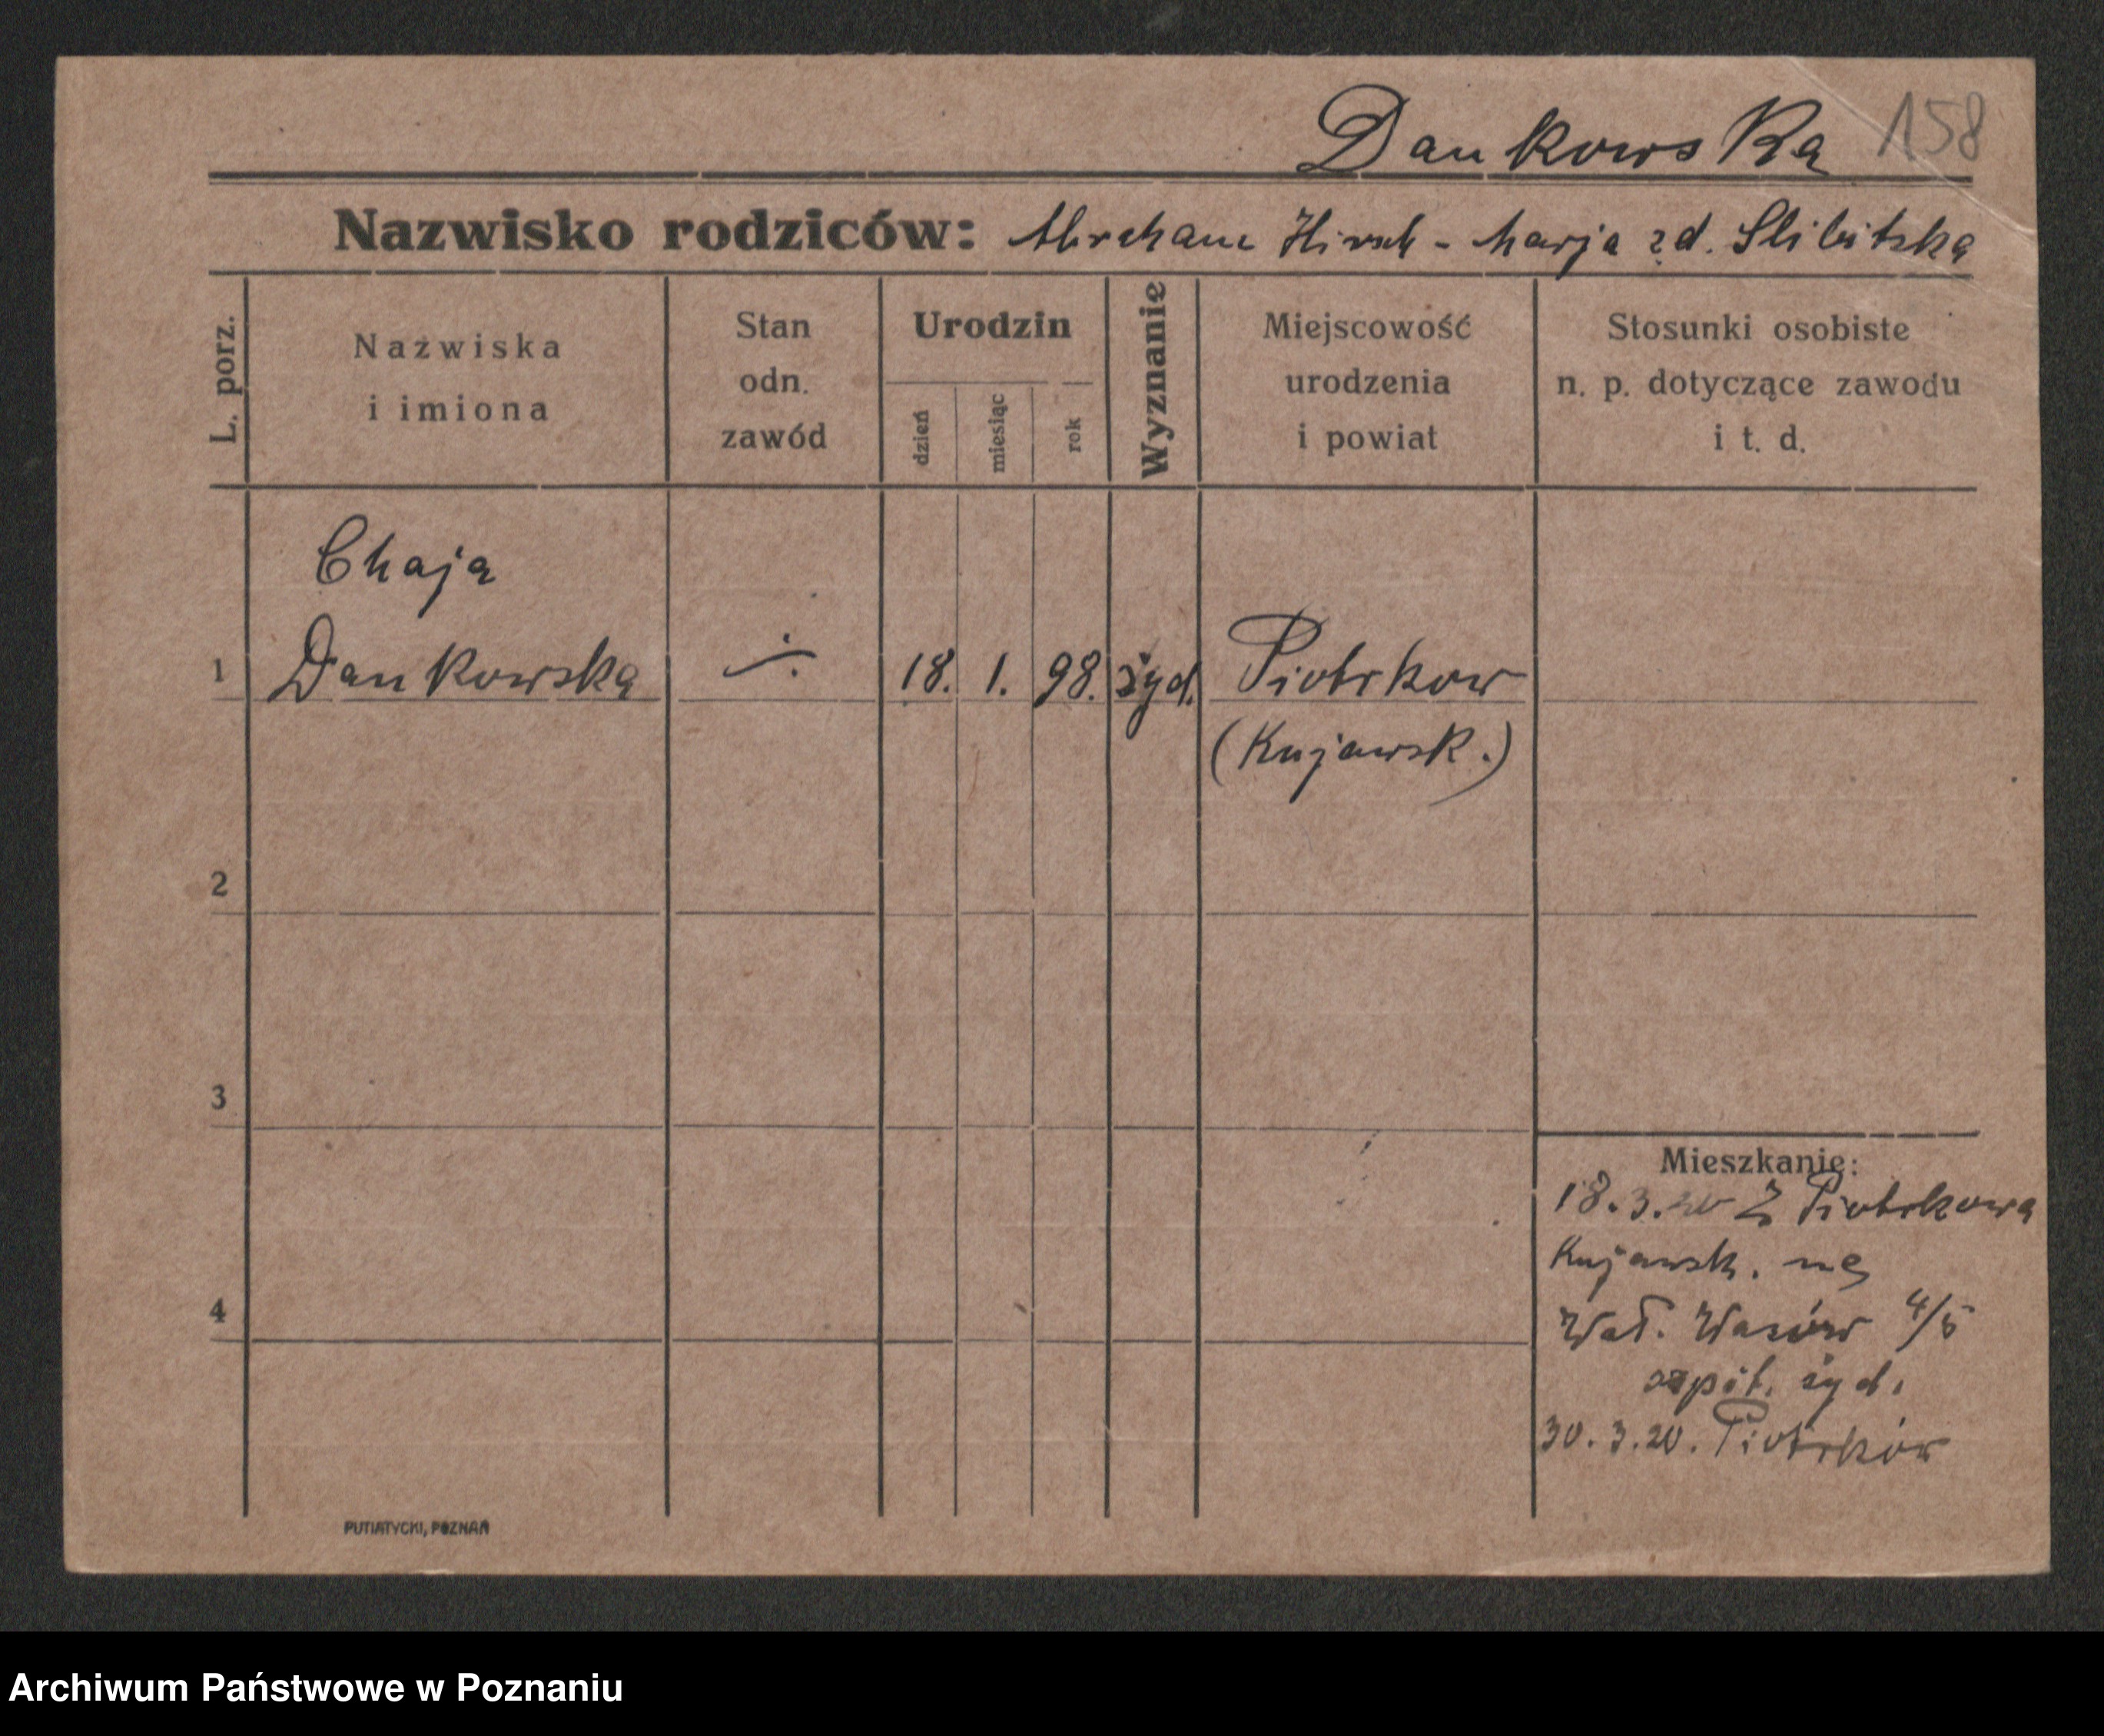 Dankowska 158
Nazwisko rodziców: Abraham Hirsch - Marja zd. Slibitska
L. porz.
Nazwiska
i imiona
Stan
odn.
zawód
Urodzin
dzień
miesiąc
rok
Wyznanie
Miejscowość
urodzenia
i powiat
Stosunki osobiste
n. p. dotyczące zawodu
i t. d.
Chaja
1 Dankowska ÷ 18. 1. 98. żyd. Piotrkow
(Kujawsk.)
2
3
4
Mieszkanie:
18. 3. 20 Z Piotrkowa
Kujawsk. na
Wał. Wazów 4/5
szpit. żyd.
30. 3. 20. Piotrków
PUTIATYCKI, POZNAŃ
Archiwum Państwowe w Poznaniu